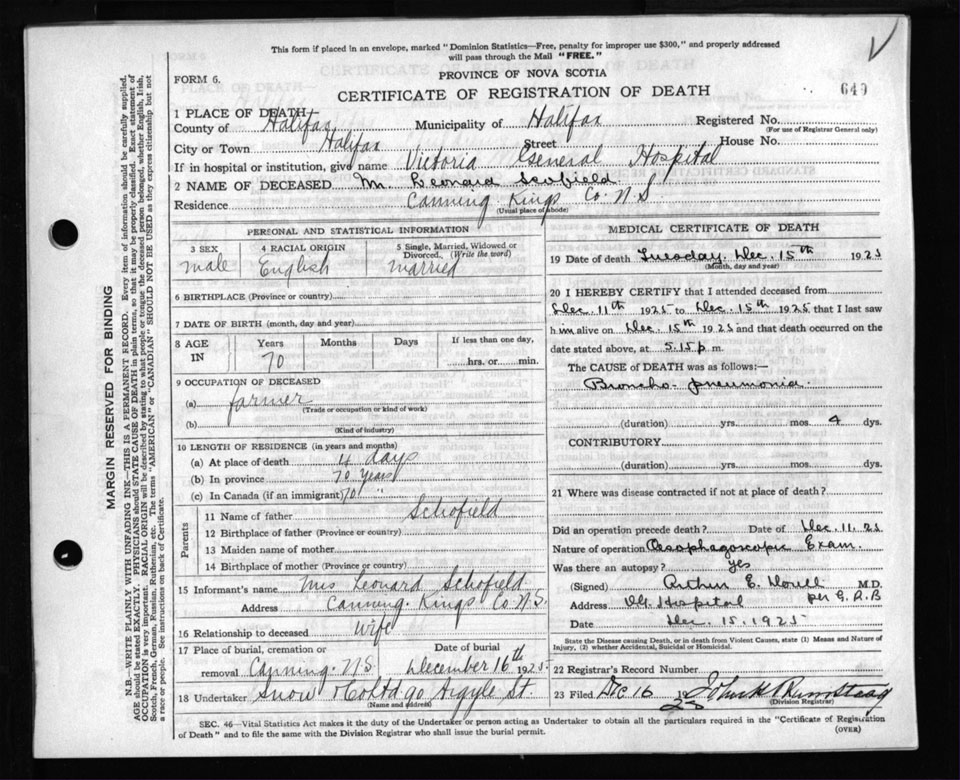 This form if placed in an envelope, marked "Dominion Statistics—Free, penalty for improper use $300," and properly addressed
will pass through the Mail "FREE."
FORM 6.
PROVINCE OF NOVA SCOTIA
CERTIFICATE OF REGISTRATION OF DEATH
649
1 PLACE OF DEATH—
County of Halifax Municipality of Halifax Registered No.
(For use of Registrar General only)
City or Town Halifax Street House No.
If in hospital or institution, give name Victoria General Hospital
2 NAME OF DECEASED Mr. Leonard Scofield
Residence Canning Kings Co N.S.
(Usual place of abode)
PERSONAL AND STATISTICAL INFORMATION
3 SEX 4 RACIAL ORIGIN 5 Single, Married, Widowed or
Divorced. (Write the word)
male English married
6 BIRTHPLACE (Province or country)
7 DATE OF BIRTH (month, day and year)
8 AGE IN Years Months Days If less than one day,
70 hrs. or min.
9 OCCUPATION OF DECEASED
(a) farmer
(Trade or occupation or kind of work)
(b)
(Kind of industry)
10 LENGTH OF RESIDENCE (in years and months)
(a) At place of death 4 days
(b) In province 70 years
(c) In Canada (if an immigrant) 70 "
Parents
11 Name of father Schofield
12 Birthplace of father (Province or country)
13 Maiden name of mother
14 Birthplace of mother (Province or country)
15 Informant's name Mrs Leonard Schofield
Address Canning. Kings Co N.S.
16 Relationship to deceased Wife
17 Place of burial, cremation or Date of burial
removal Canning. N.S. December 16th 1925
18 Undertaker Snow & Co Ltd 90 Argyle St.
(Name and address)
MEDICAL CERTIFICATE OF DEATH
19 Date of death Tuesday. Dec. 15th 1925
(Month, day and year)
20 I HEREBY CERTIFY that I attended deceased from
Dec 11th 1925 to Dec. 15th 1925 that I last saw
him alive on Dec. 15th 1925 and that death occurred on the
date stated above, at 5.15 p m.
The CAUSE of DEATH was as follows:—
Broncho. pneumonia.
(duration) yrs. mos. 4 dys.
CONTRIBUTORY
(duration) yrs. mos. dys.
21 Where was disease contracted if not at place of death?
Did an operation precede death? Date of Dec. 11. 25
Nature of operation Oesophagoscopic Exam.
Was there an autopsy? yes
(Signed) Arthur E. Doull M.D.
Address V.G. Hospital per G.A.B
Date Dec. 15. 1925
State the Disease causing Death, or in death from Violent Causes, state (1) Means and Nature
of Injury, (2) whether Accidental, Suicidal or Homicidal.
22 Registrar's Record Number
23 Filed Dec 16 1925
(Division Registrar)
SEC. 46—Vital Statistics Act makes it the duty of the Undertaker or person acting as Undertaker to obtain all the particulars required in the "Certificate of Registration
of Death" and to file the same with the Division Registrar who shall issue the burial permit.
(OVER)
MARGIN RESERVED FOR BINDING
N.B.—WRITE PLAINLY WITH UNFADING INK—THIS IS A PERMANENT RECORD. Every item of information should be carefully supplied.
AGE should be stated EXACTLY. PHYSICIANS should STATE CAUSE OF DEATH in plain terms, so that it may be properly classified. Exact statement of
OCCUPATION is very important. RACIAL ORIGIN will be described by stating to what people or tongue the deceased person belonged, whether English, Irish,
Scotch, French, German, Russian, Ruthenian, etc. The terms "AMERICAN" or "CANADIAN" SHOULD NOT BE USED as they express citizenship but not
a race or people. See instructions on back of Certificate.